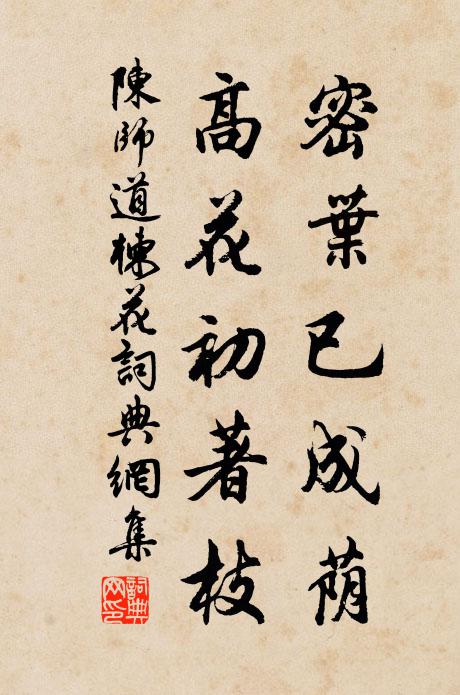 密葉已成荫
高花初著枝
陳師道楝花詞典網集
詞典网印